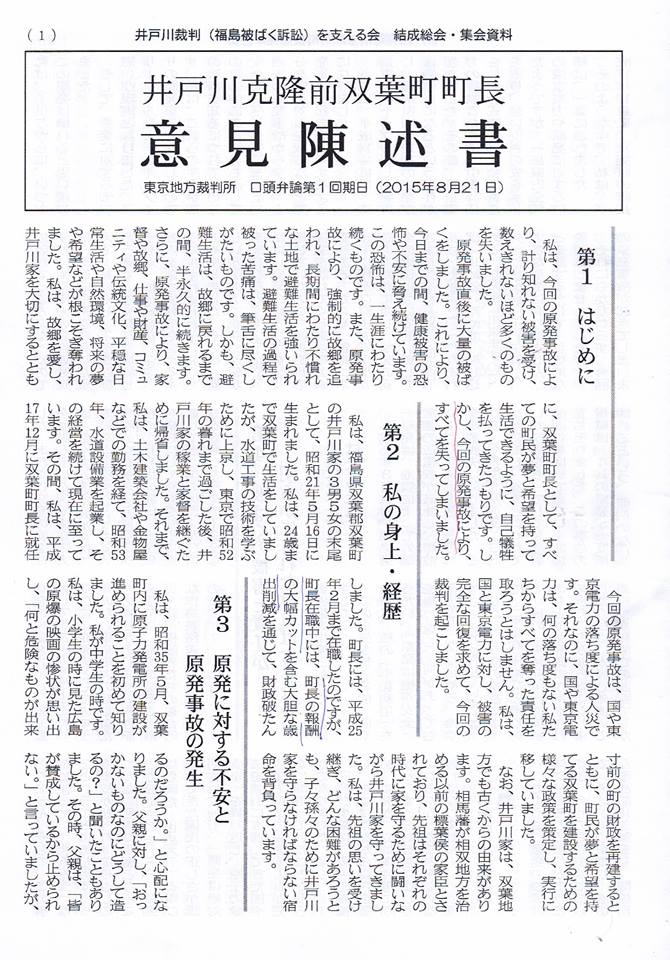 (1)
井戸川裁判（福島被ばく訴訟）を支える会　結成総会・集会資料
井戸川克隆前双葉町町長
意見陳述書
東京地方裁判所　口頭弁論第1回期日（2015年8月21日）
第1　はじめに
私は、今回の原発事故によ
り、計り知れない被害を受け、
数えきれないほど多くのもの
を失いました。
原発事故直後に大量の被ば
くをしました。これにより、
今日までの間、健康被害の恐
怖や不安に脅え続けています。
この恐怖は、一生涯にわたり
続くものです。また、原発事
故により、強制的に故郷を追
われ、長期間にわたり不慣れ
な土地で避難生活を強いられ
ています。避難生活の過程で
被った苦痛は、筆舌に尽くし
がたいものです。しかも、避
難生活は、故郷に戻れるまで
の間、半永久的に続きます。
さらに、原発事故により、家
督や故郷、仕事や財産、コミュ
ニティや伝統文化、平穏な日
常生活や自然環境、将来の夢
や希望などが根こそぎ奪われ
ました。私は、故郷を愛し、
井戸川家を大切にするととも
に、双葉町町長として、すべ
ての町民が夢と希望を持って
生活できるように、自己犠牲
を払ってきたつもりです。し
かし、今回の原発事故により、
すべてを失ってしまいました。
今回の原発事故は、国や東
京電力の落ち度による人災で
す。それなのに、国や東京電
力は、何の落ち度もない私た
ちからすべてを奪った責任を
取ろうとはしません。私は、
国と東京電力に対し、被害の
完全な回復を求めて、今回の
裁判を起こしました。
第2　私の身上・経歴
私は、福島県双葉郡双葉町
の井戸川家の3男5女の末尾
として、昭和21年5月16日に
生まれました。私は、24歳ま
で双葉町で生活をしていまし
たが、水道工事の技術を学ぶ
ために上京し、東京で昭和52
年の暮れまで過ごした後、井
戸川家の稼業と家督を継ぐた
めに帰省しました。それまで、
私は、土木建築会社や金物屋
などでの勤務を経て、昭和53
年、水道設備業を起業し、そ
の経営を続けて現在に至って
います。その間、私は、平成
17年12月に双葉町町長に就任
しました。町長には、平成25
年2月まで在職したのですが、
町長在職中には、町長の報酬
の大幅カットを含む大胆な歳
出削減を通じて、財政破たん
寸前の町の財政を再建すると
ともに、町民が夢と希望を持
てる双葉町を建設するための
様々な政策を策定し、実行に
移していました。
なお、井戸川家は、双葉地
方でも古くからの由来があり
ます。相馬藩が相双地方を治
める以前の標葉侯の家臣とさ
れており、先祖はそれぞれの
時代に家を守るために闘いな
がら井戸川家を守ってきまし
た。私は、先祖の思いを受け
継ぎ、どんな困難があろうと
も、子々孫々のために井戸川
家を守らなければならない宿
命を背負っています。
第3　原発に対する不安と
原発事故の発生
私は、昭和35年5月、双葉
町内に原子力発電所の建設が
進められることを初めて知り
ました。私が中学生の時です。
私は、小学生の時に見た広島
の原爆の映画の惨状が思い出
し、「何と危険なものが出来
るのだろうか。」と心配にな
りました。父親に対し、「おっ
かないものなのにどうして造
るの？」と聞いたこともあり
ました。その時、父親は、「皆
が賛成しているから止められ
ない。」と言っていましたが、